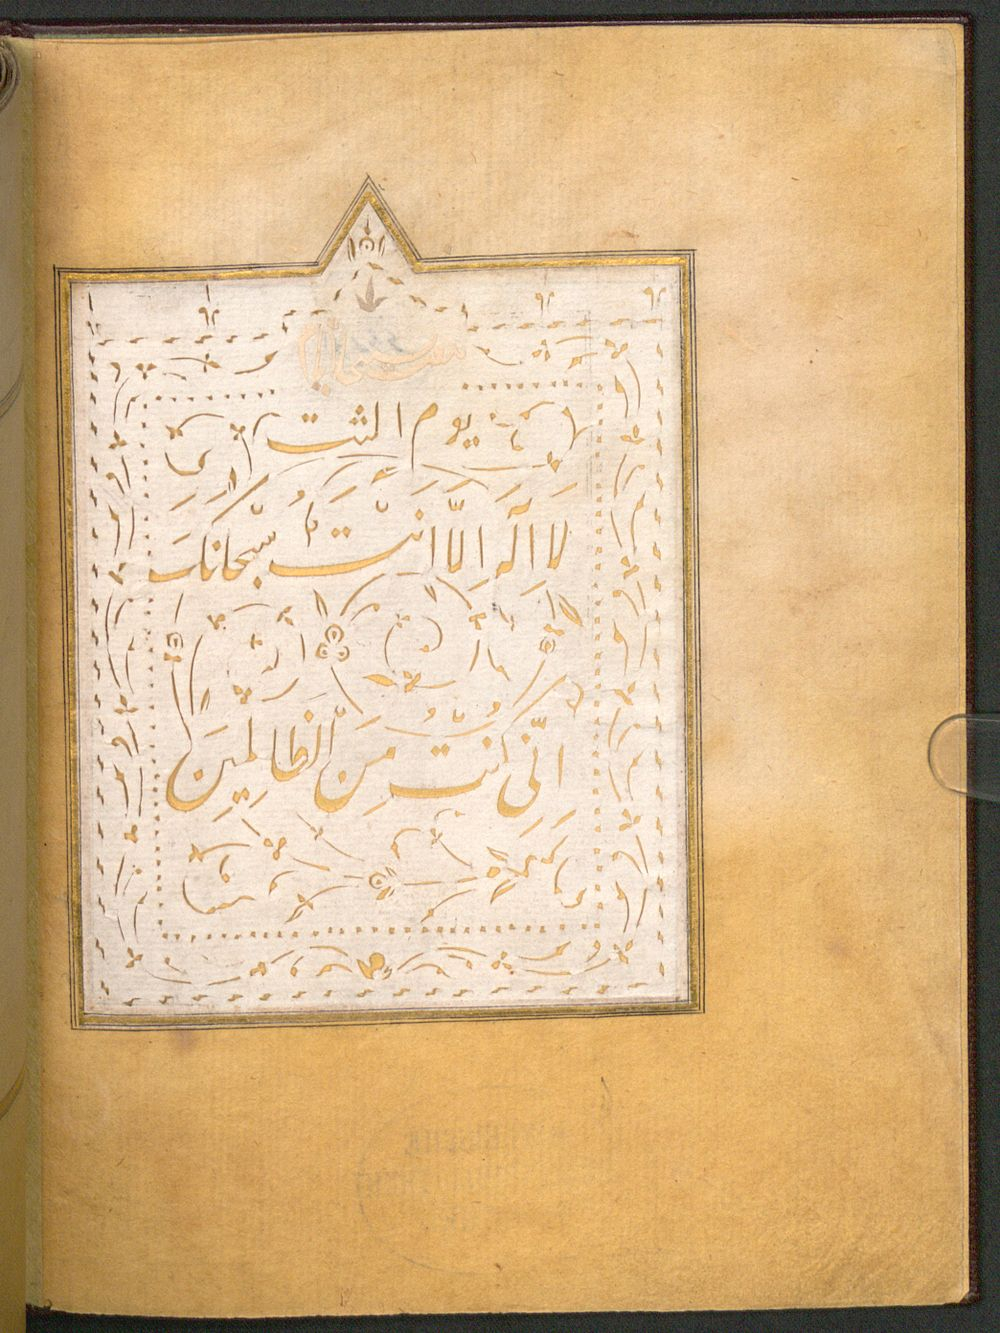 يوم الثلث
لَا اِلٰهَ اِلَّا اَنْتَ سُبْحَانَكَ
اِنِّي كُنْتُ مِنَ الظَّالِمِينَ